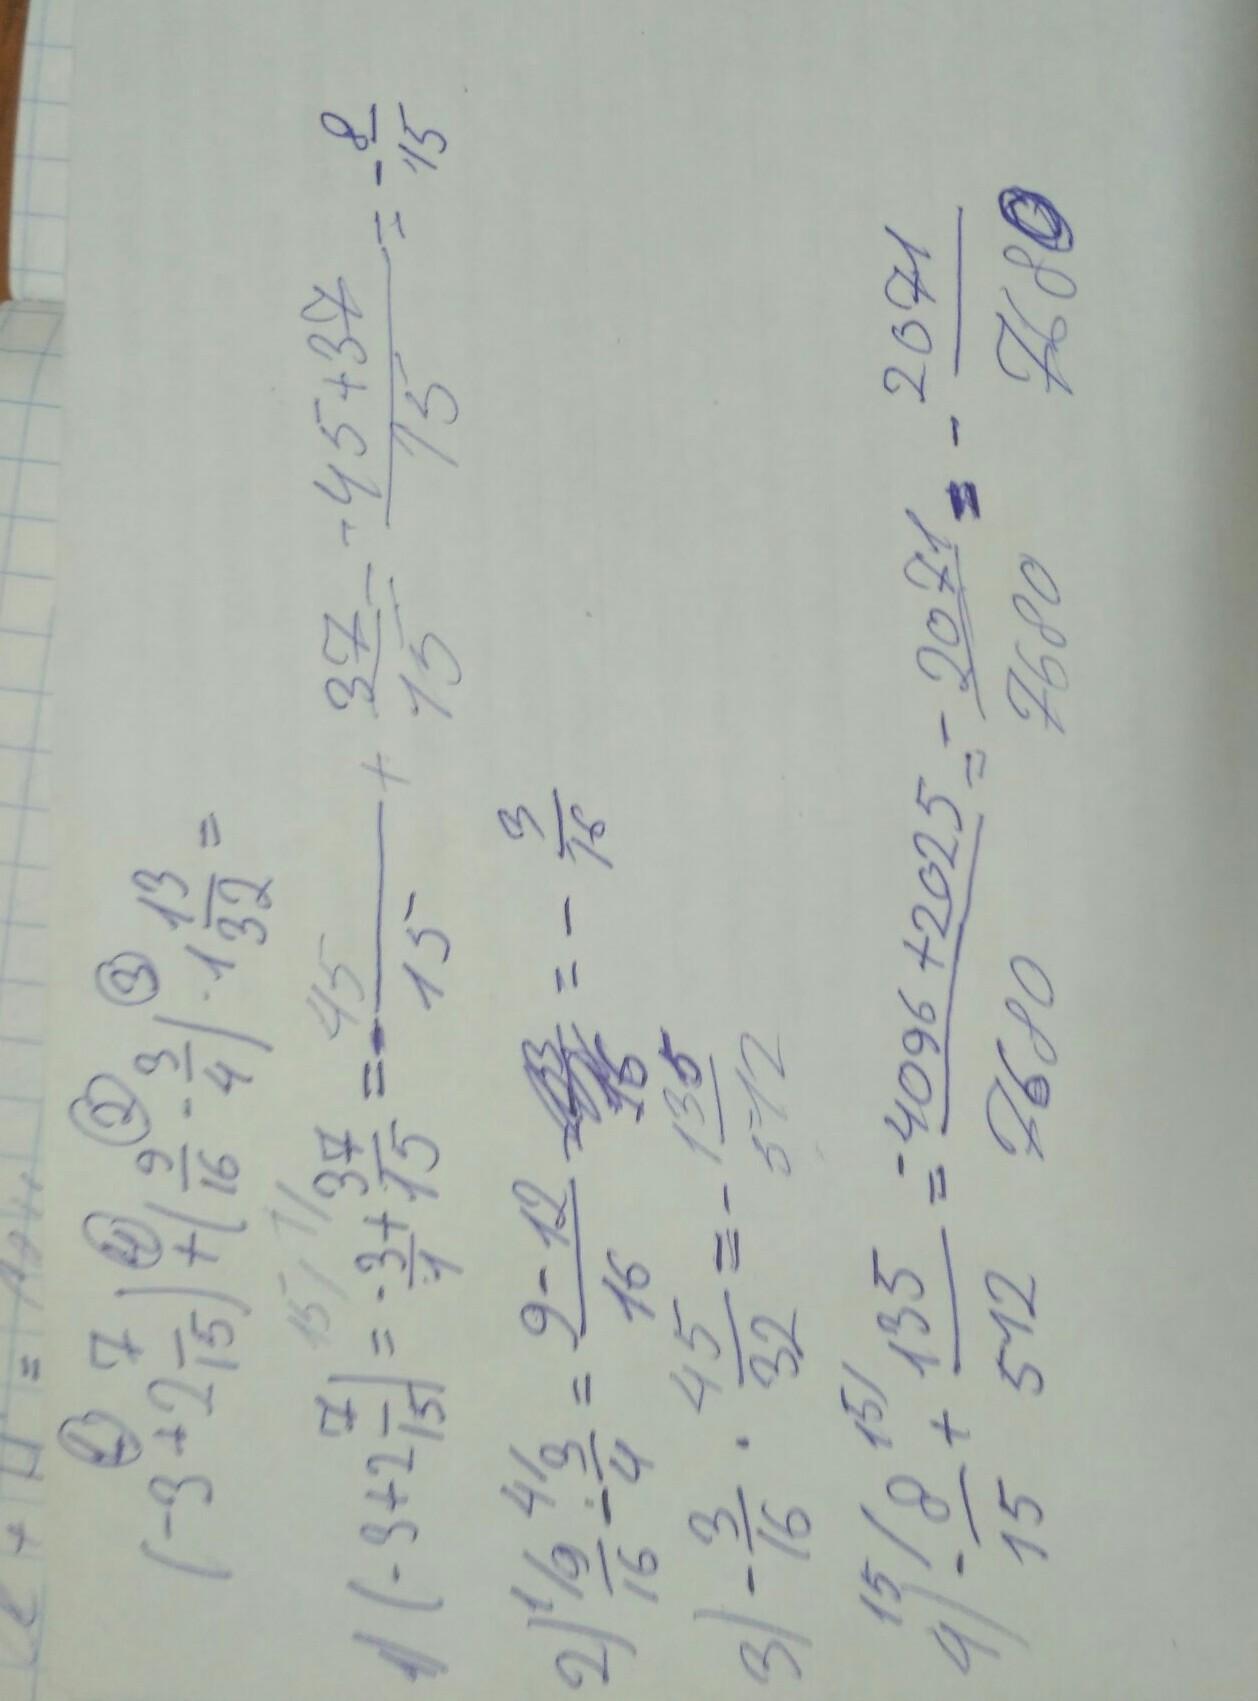 ① ④ ② ③
(-3+2 7/15)+(9/16-3/4)·1 13/32=
1)(-3+2 7/15)=-3/1+37/15=-45/15+37/15=-45+37/15=-8/15
2)9/16-3/4=9-12/16=-3/16
3)-3/16·45/32=-135/512
4)-8/15+135/512=-4096+2025/7680=-2071/7680=-2071/7680